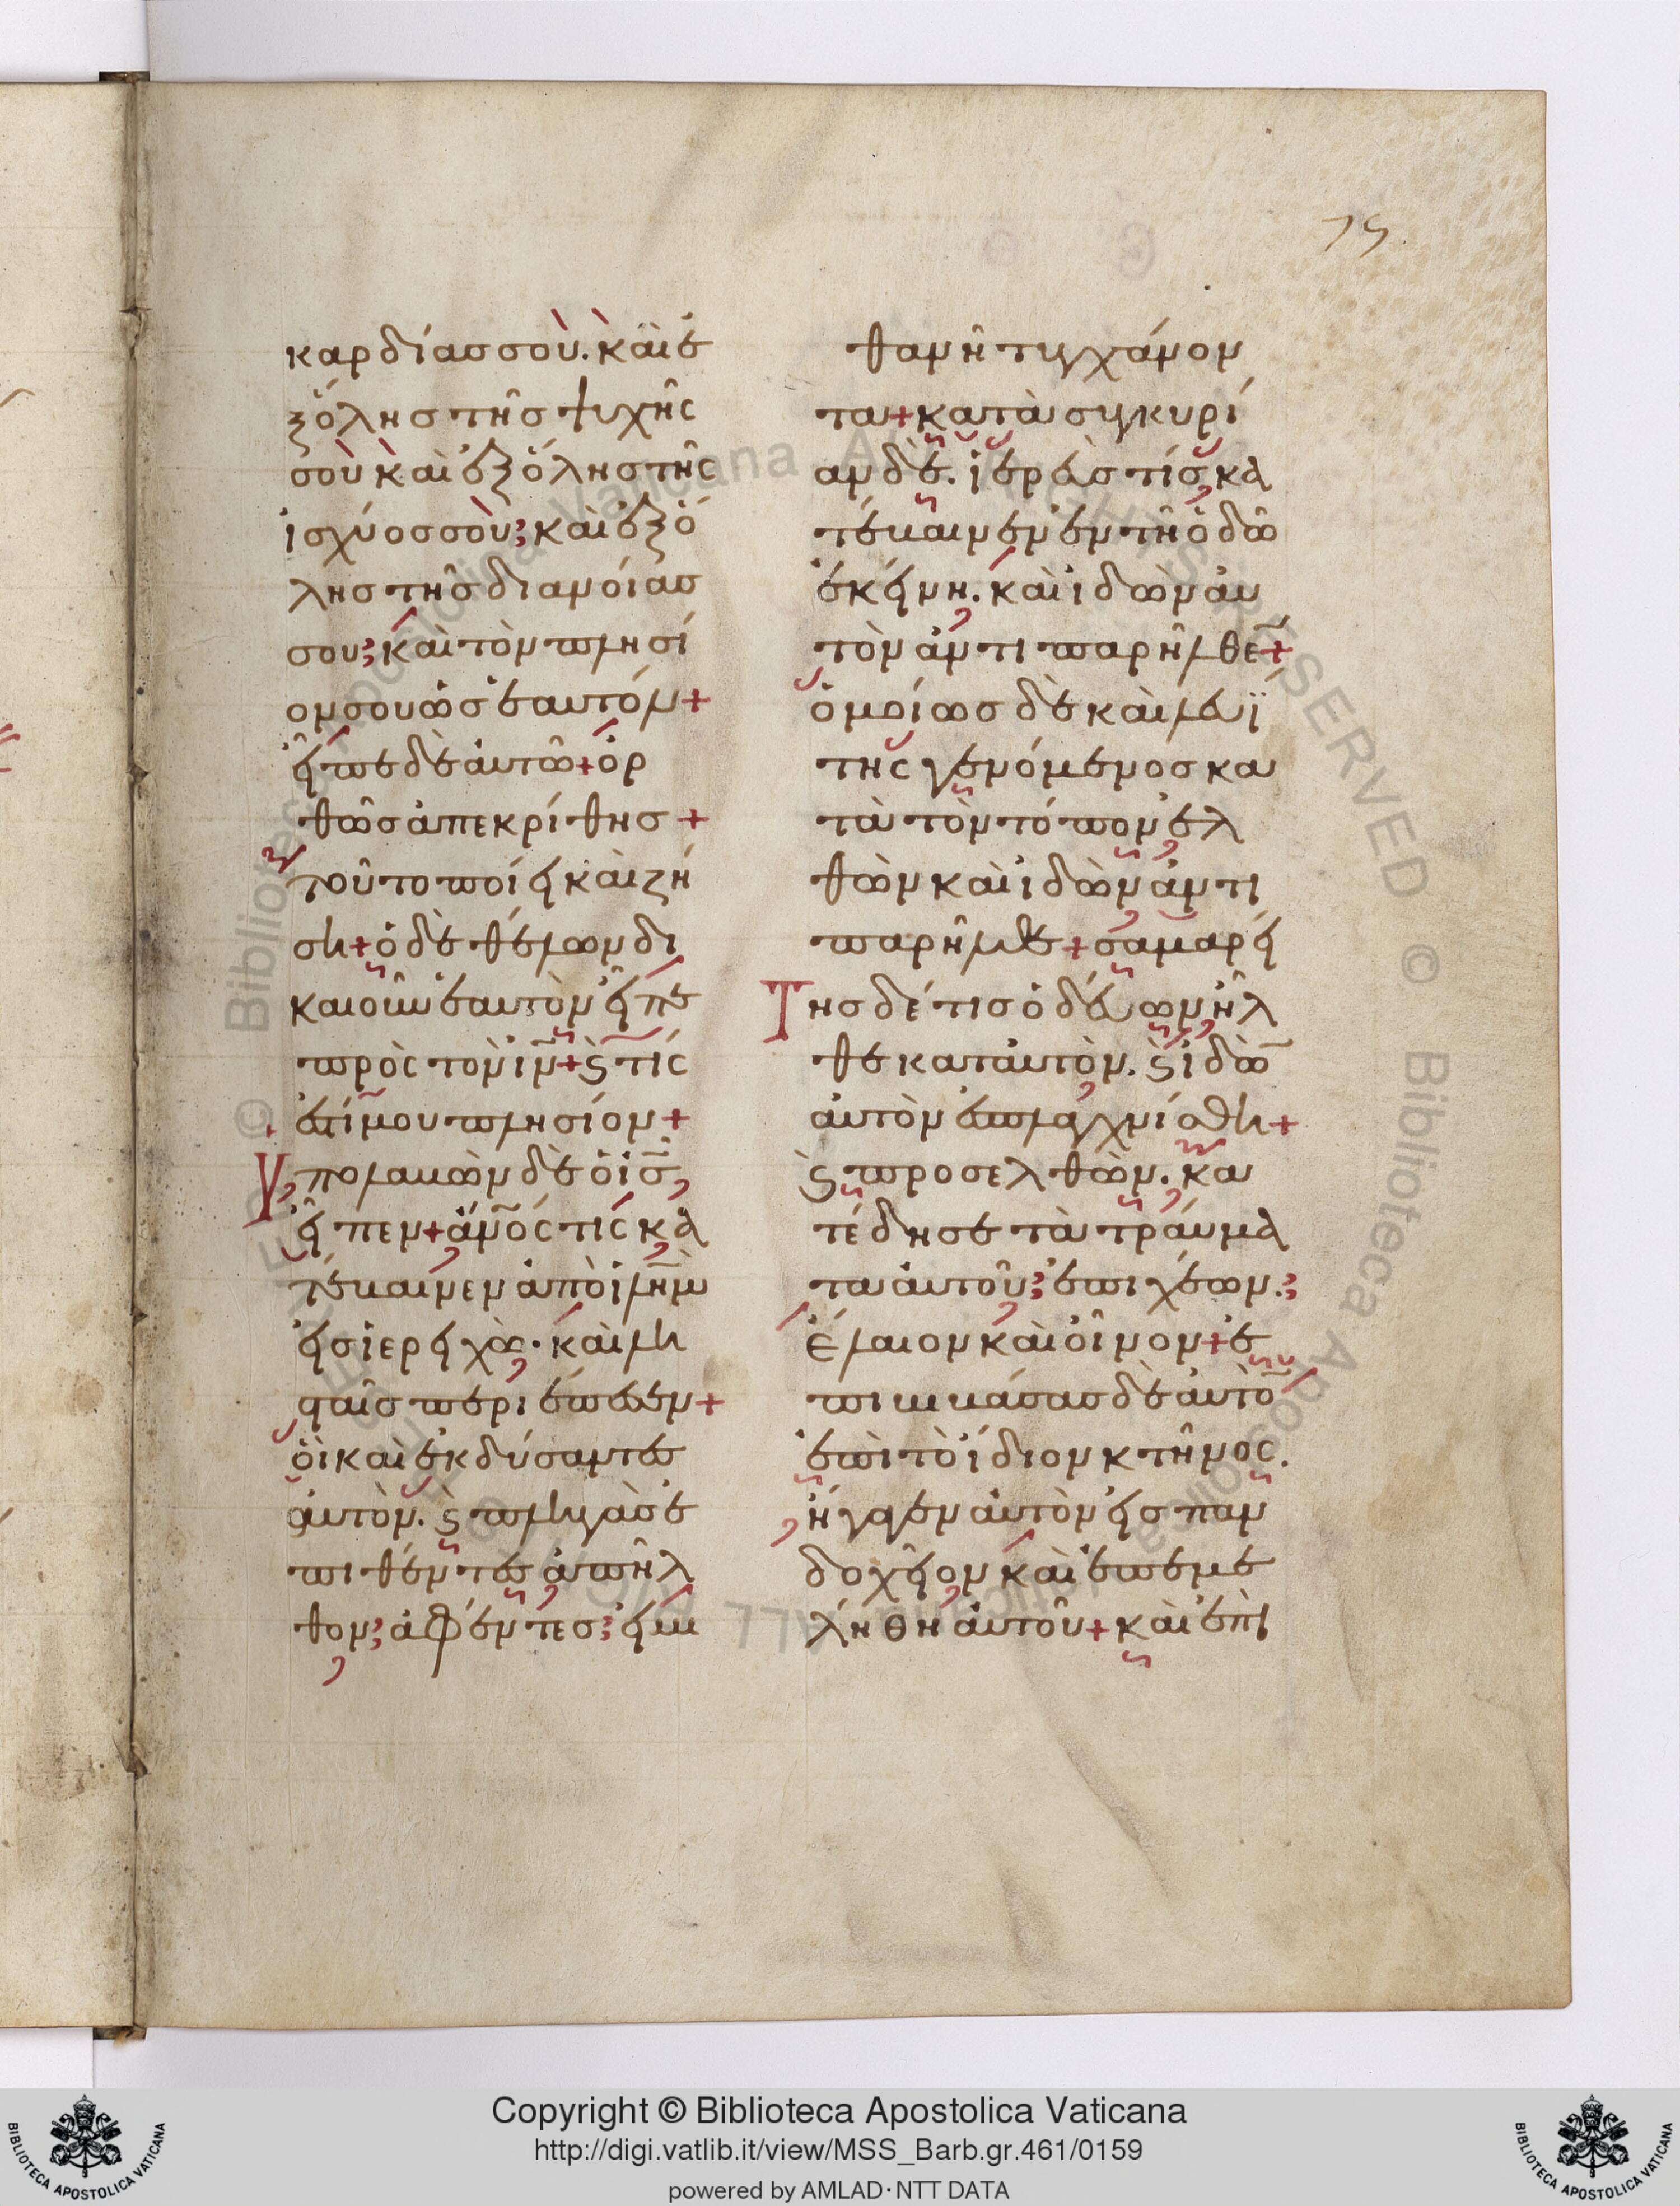 75.
καρδίας σοὺ. κὰι ἐ
ξ ὅλης τῆς ψυχῆς
σοὺ κὰι ἐξ ὅλης τῆς
ἰσχύος σοὺ; καὶ ἐξ ὅ
λης τῆς διανοίας
σου; καὶ τὸν πλησί
ον σου ὡς ἑαυτόν+
εἶπε δὲ ἀυτῶ+ ὀρ
θῶς ἀπεκρίθης +
τοῦτο ποίει καὶ ζή
ση+ ὁ δὲ θέλων δι
καιοῦν ἑαυτὸν εἶπε
πρὸς τὸν ἰν̅+ ϗ τίς
ἐστί μου πλησίον+
Υπολαβὼν δὲ ὁ ἰς̅,
εἶπεν+ ἀν̅ός τις κα
τέβαινεν ἀπὸ ἱλη̅μ
εἰς ἱερειχὼ. καὶ λη
σταῖς περιέπεσεν+
ὁὶ καὶ ἐκδύσαντες
ἀυτὸν. ϗ πληγὰς ἐ
πιθέντες ἀπῆλ
θον; ἀφέντες; ἡμι
θανῆ τυγχάνον
τα+ κατὰ συγκυρί
αν δὲ. ἱερεύς τίς κα
τέβαινεν ἐν τῆ ὁδῶ
ἐκείνη. καὶ ἰδὼν ἀυ
τὸν ἀντιπαρῆλθε+
ὁμοίως δὲ καὶ λευΐ
της γενόμενος κα
τὰ τὸν τόπον ἐλ
θὼν καὶ ἰδὼν ἀντι
παρῆλθε+ σαμαρεί
Της δέ τις ὁδέυων ἦλ
θε κατἀυτὸν. ϗ ἰδὼ̅
ἀυτὸν ἐσπλαγχνίσθη+
ϗ προσελθὼν. κα
τέδησε τὰ τράυμα
τα ἀυτοῦ; ἐπιχέων.;
ἔλαιον καὶ οἶνον+ ἐ
πιβιβάσας δὲ ἀυτὸ̅
ἐπὶ τὸ ἴδιον κτῆνος.
ἤγαγεν ἀυτὸν εἰς παν
δοχεῖον καὶ ἐπεμε
λήθη ἀυτοῦ+ καὶ ἐπὶ
Copyright © Biblioteca Apostolica Vaticana
http://digi.vatlib.it/view/MSS_Barb.gr.461/0159
powered by AMLAD·NTT DATA
BIBLIOTECA APOSTOLICA VATICANA
BIBLIOTECA APOSTOLICA VATICANA